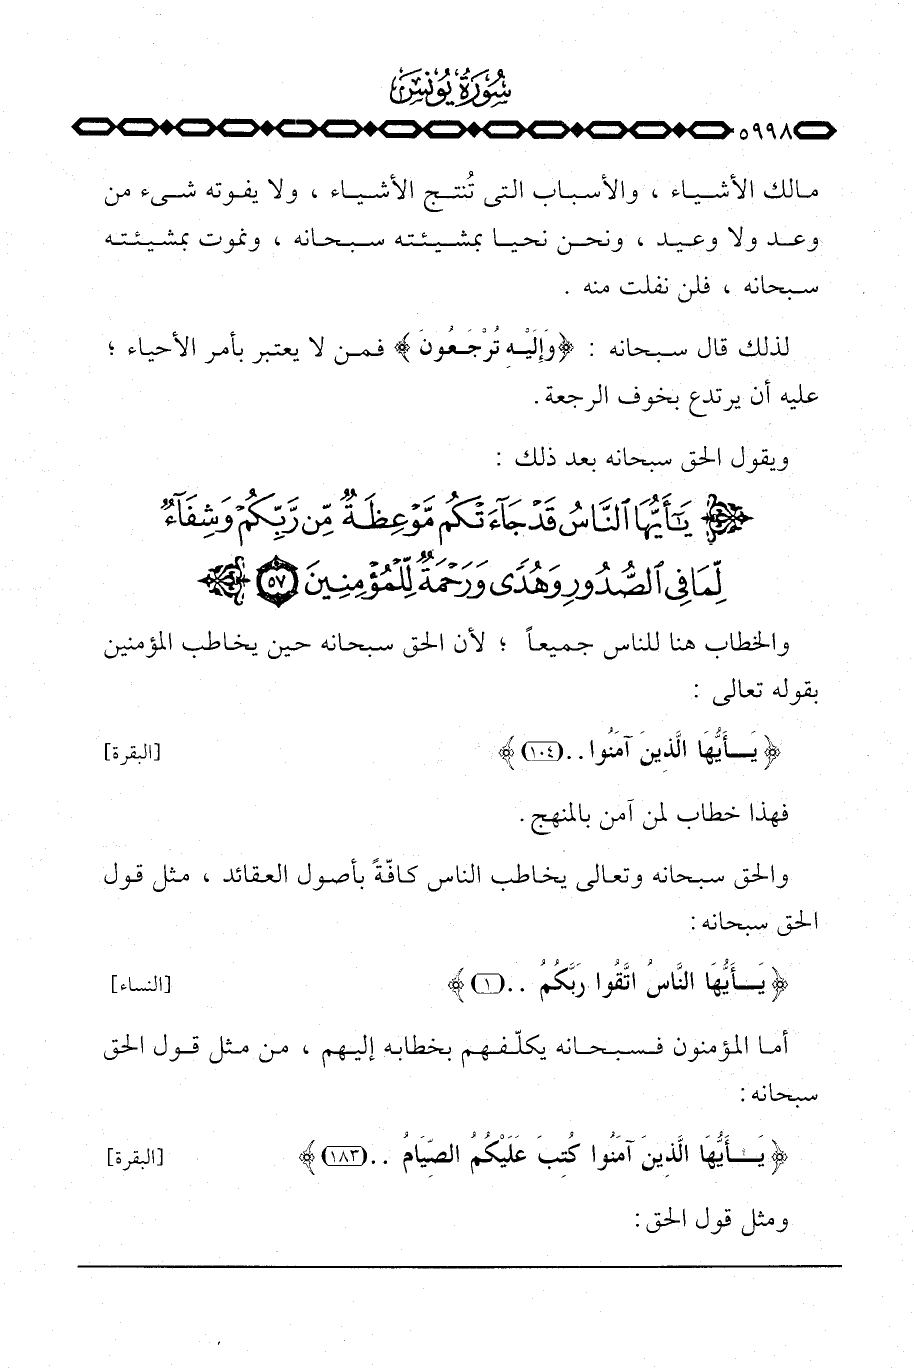 سُورَةُ يُونُسَ
٥٩٩٨
مالك الأشياء ، والأسباب التى تُنتج الأشياء ، ولا يفوته شىء من
وعد ولا وعيد ، ونحن نحيا بمشيئته سبحانه ، ونموت بمشيئته
سبحانه ، فلن نفلت منه .
لذلك قال سبحانه : ﴿وَإِلَيْهِ تُرْجَعُونَ﴾ فمن لا يعتبر بأمر الأحياء ؛
عليه أن يرتدع بخوف الرجعة.
ويقول الحق سبحانه بعد ذلك :
﴿ يَٰٓأَيُّهَا ٱلنَّاسُ قَدْ جَآءَتْكُم مَّوْعِظَةٌ مِّن رَّبِّكُمْ وَشِفَآءٌ
لِّمَا فِى ٱلصُّدُورِ وَهُدًى وَرَحْمَةٌ لِّلْمُؤْمِنِينَ ٥٧ ﴾
والخطاب هنا للناس جميعاً ؛ لأن الحق سبحانه حين يخاطب المؤمنين
بقوله تعالى :
﴿ يَـٰأَيُّهَا الَّذِينَ آمَنُوا .. (١٠٤) ﴾ [البقرة]
فهذا خطاب لمن آمن بالمنهج .
والحق سبحانه وتعالى يخاطب الناس كافّةً بأصول العقائد ، مثل قول
الحق سبحانه:
﴿ يَـٰأَيُّهَا النَّاسُ اتَّقُوا رَبَّكُمُ .. (١) ﴾ [النساء]
أما المؤمنون فسبحانه يكلّفهم بخطابه إليهم ، من مثل قول الحق
سبحانه:
﴿ يَـٰأَيُّهَا الَّذِينَ آمَنُوا كُتِبَ عَلَيْكُمُ الصِّيَامُ .. (١٨٣) ﴾ [البقرة]
ومثل قول الحق: